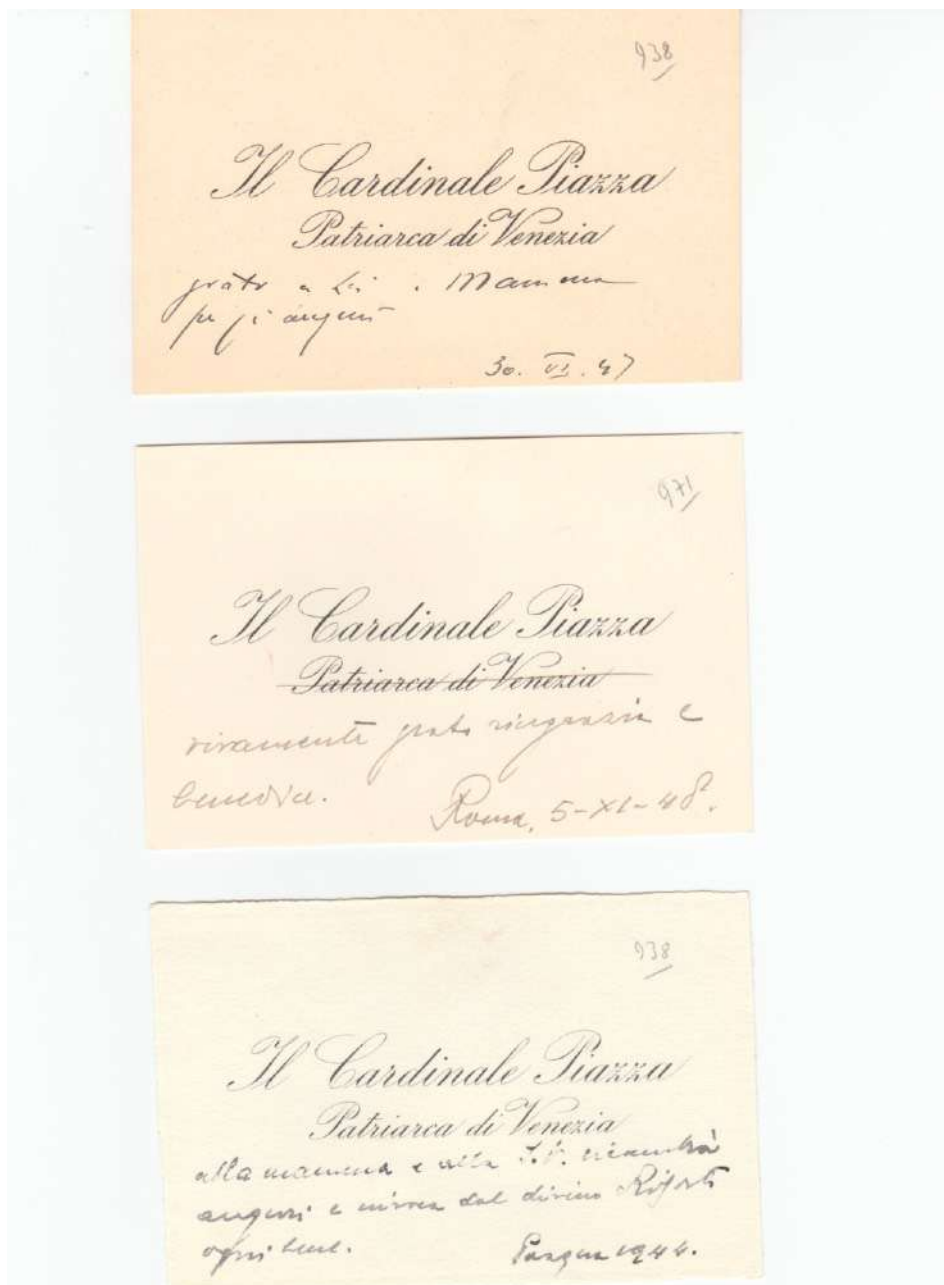 938
Il Cardinale Piazza
Patriarca di Venezia
grato a Lei e Mamma
per gli auguri
30. VI. 47
971
Il Cardinale Piazza
Patriarca di Venezia
vivamente grato ringrazia e
benedice.
Roma, 5-XI-48.
938
Il Cardinale Piazza
Patriarca di Venezia
alla mamma e alla S.V.
auguri e dal divino
ogni bene.
Pasqua 1944.